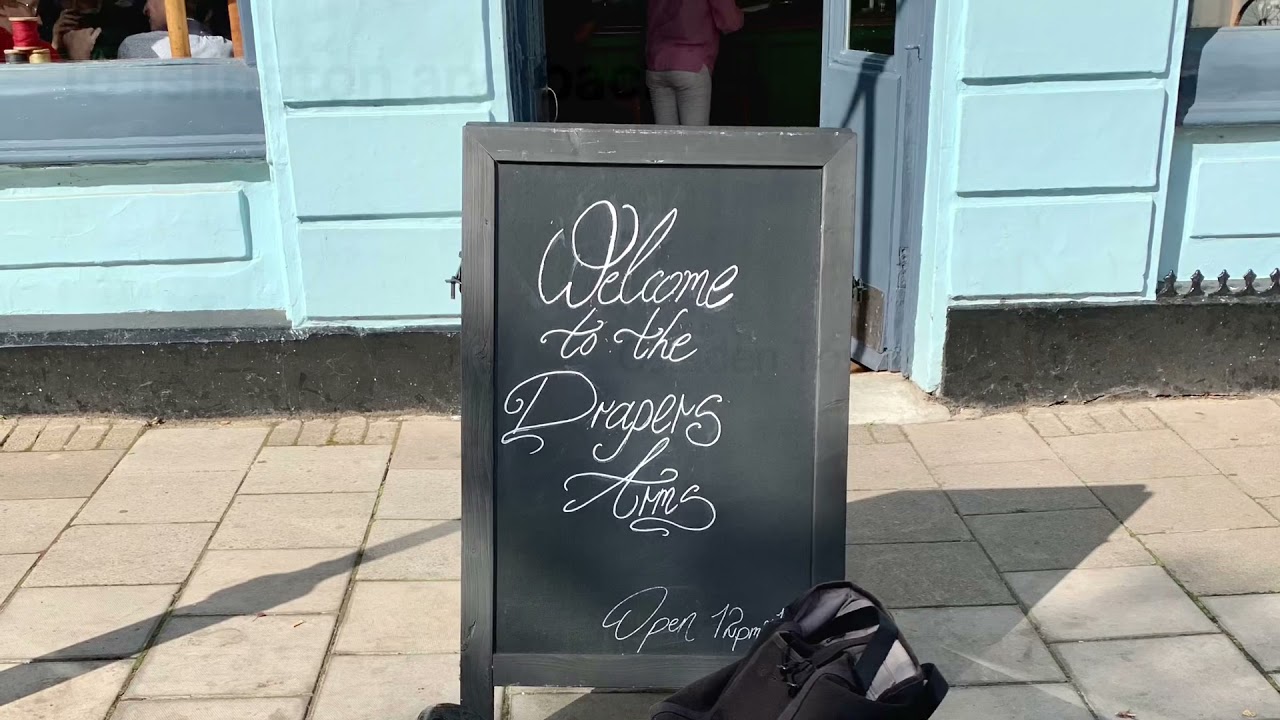 Welcome
to the
Drapers
Arms
Open 12pm